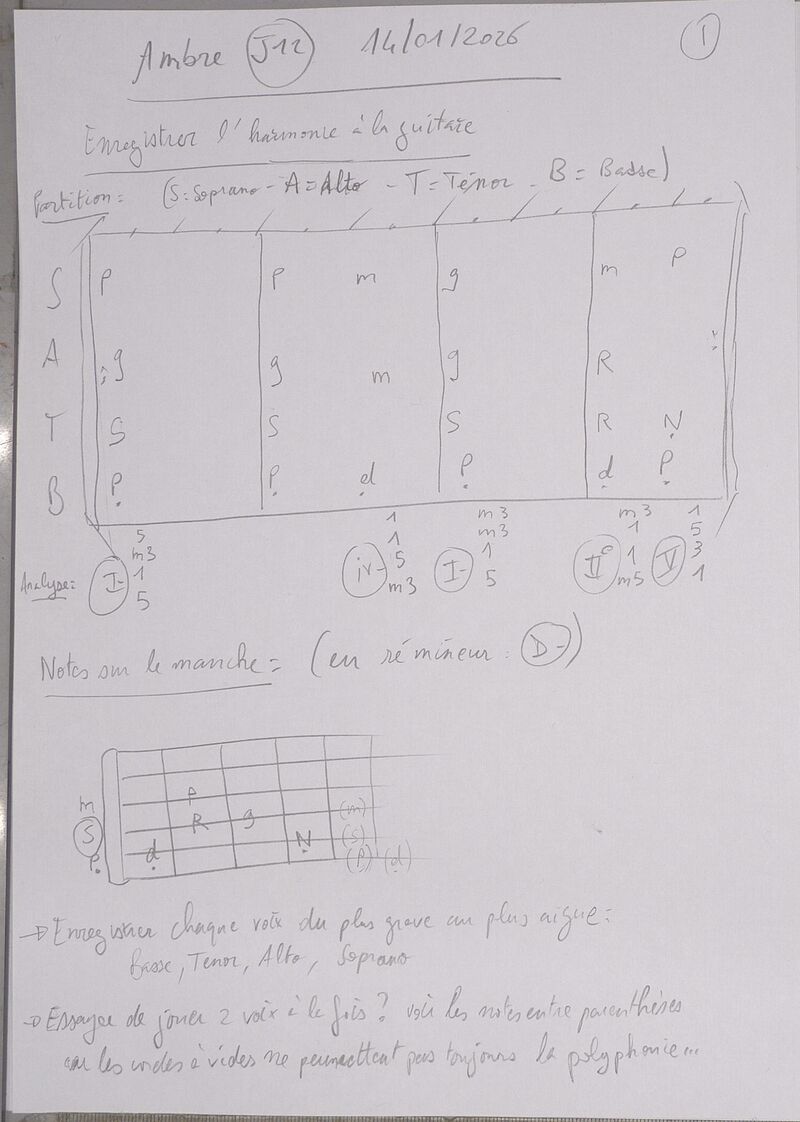 Ambre J12 14/01/2026 1
Enregistrer l'harmonie à la guitare
Partition = (S=Soprano - A=Alto - T=Ténor - B=Basse)
S P P m g m P
A g g m g R
T S S S R N
B P P d P d P
5 1 m3 m3 1
m3 1 m3 1 5
Analyse = I- 1 iv- 5 I- 1 II° 1 V 3
5 m3 5 m5 1
Notes sur le manche = (en ré mineur : D-)
P
m R g (m)
S d N (S)
P (P) (d)
→ Enregistrer chaque voix du plus grave au plus aigue =
Basse, Tenor, Alto, Soprano
→ Essayer de jouer 2 voix à la fois ? voir les notes entre parenthèses
car les cordes à vides ne permettent pas toujours la polyphonie...